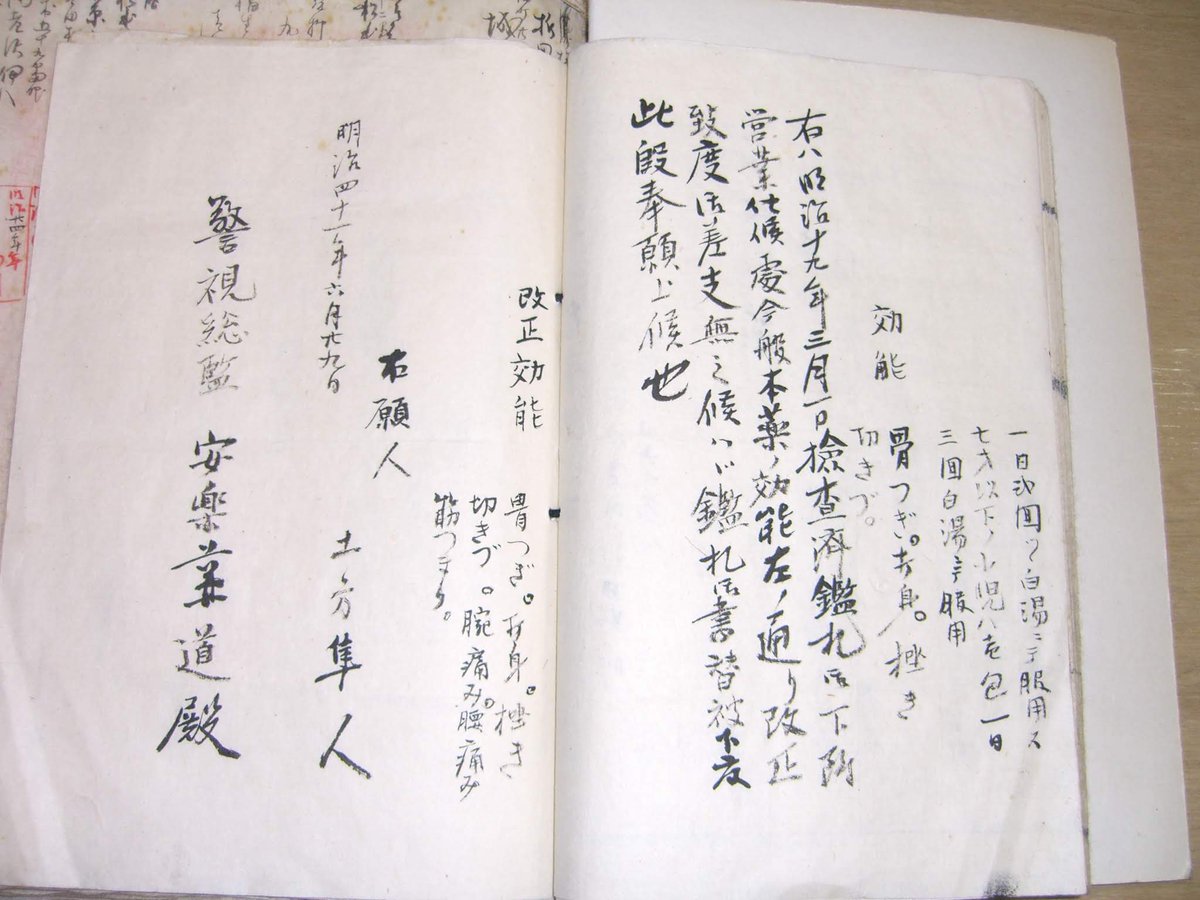 一日弐回ツ白湯ニテ服用ス
七才以下ノ小児ハ壱包一日
三回白湯ニテ服用
効能
骨つぎ。打身。挫き
切きづ。
右ハ明治十九年三月一日検査済鑑札御下附
営業仕候處今般本薬ノ効能左ノ通リ改正
致度御差支無之候ハヾ鑑札御書替被下度
此段奉願上候也
改正効能
骨つぎ。打身。挫き
切きづ。腕痛み。腰痛み
筋つまり。
右願人
土方隼人
明治四十一年六月廿九日
警視総監 安楽兼道殿
明治廿四年